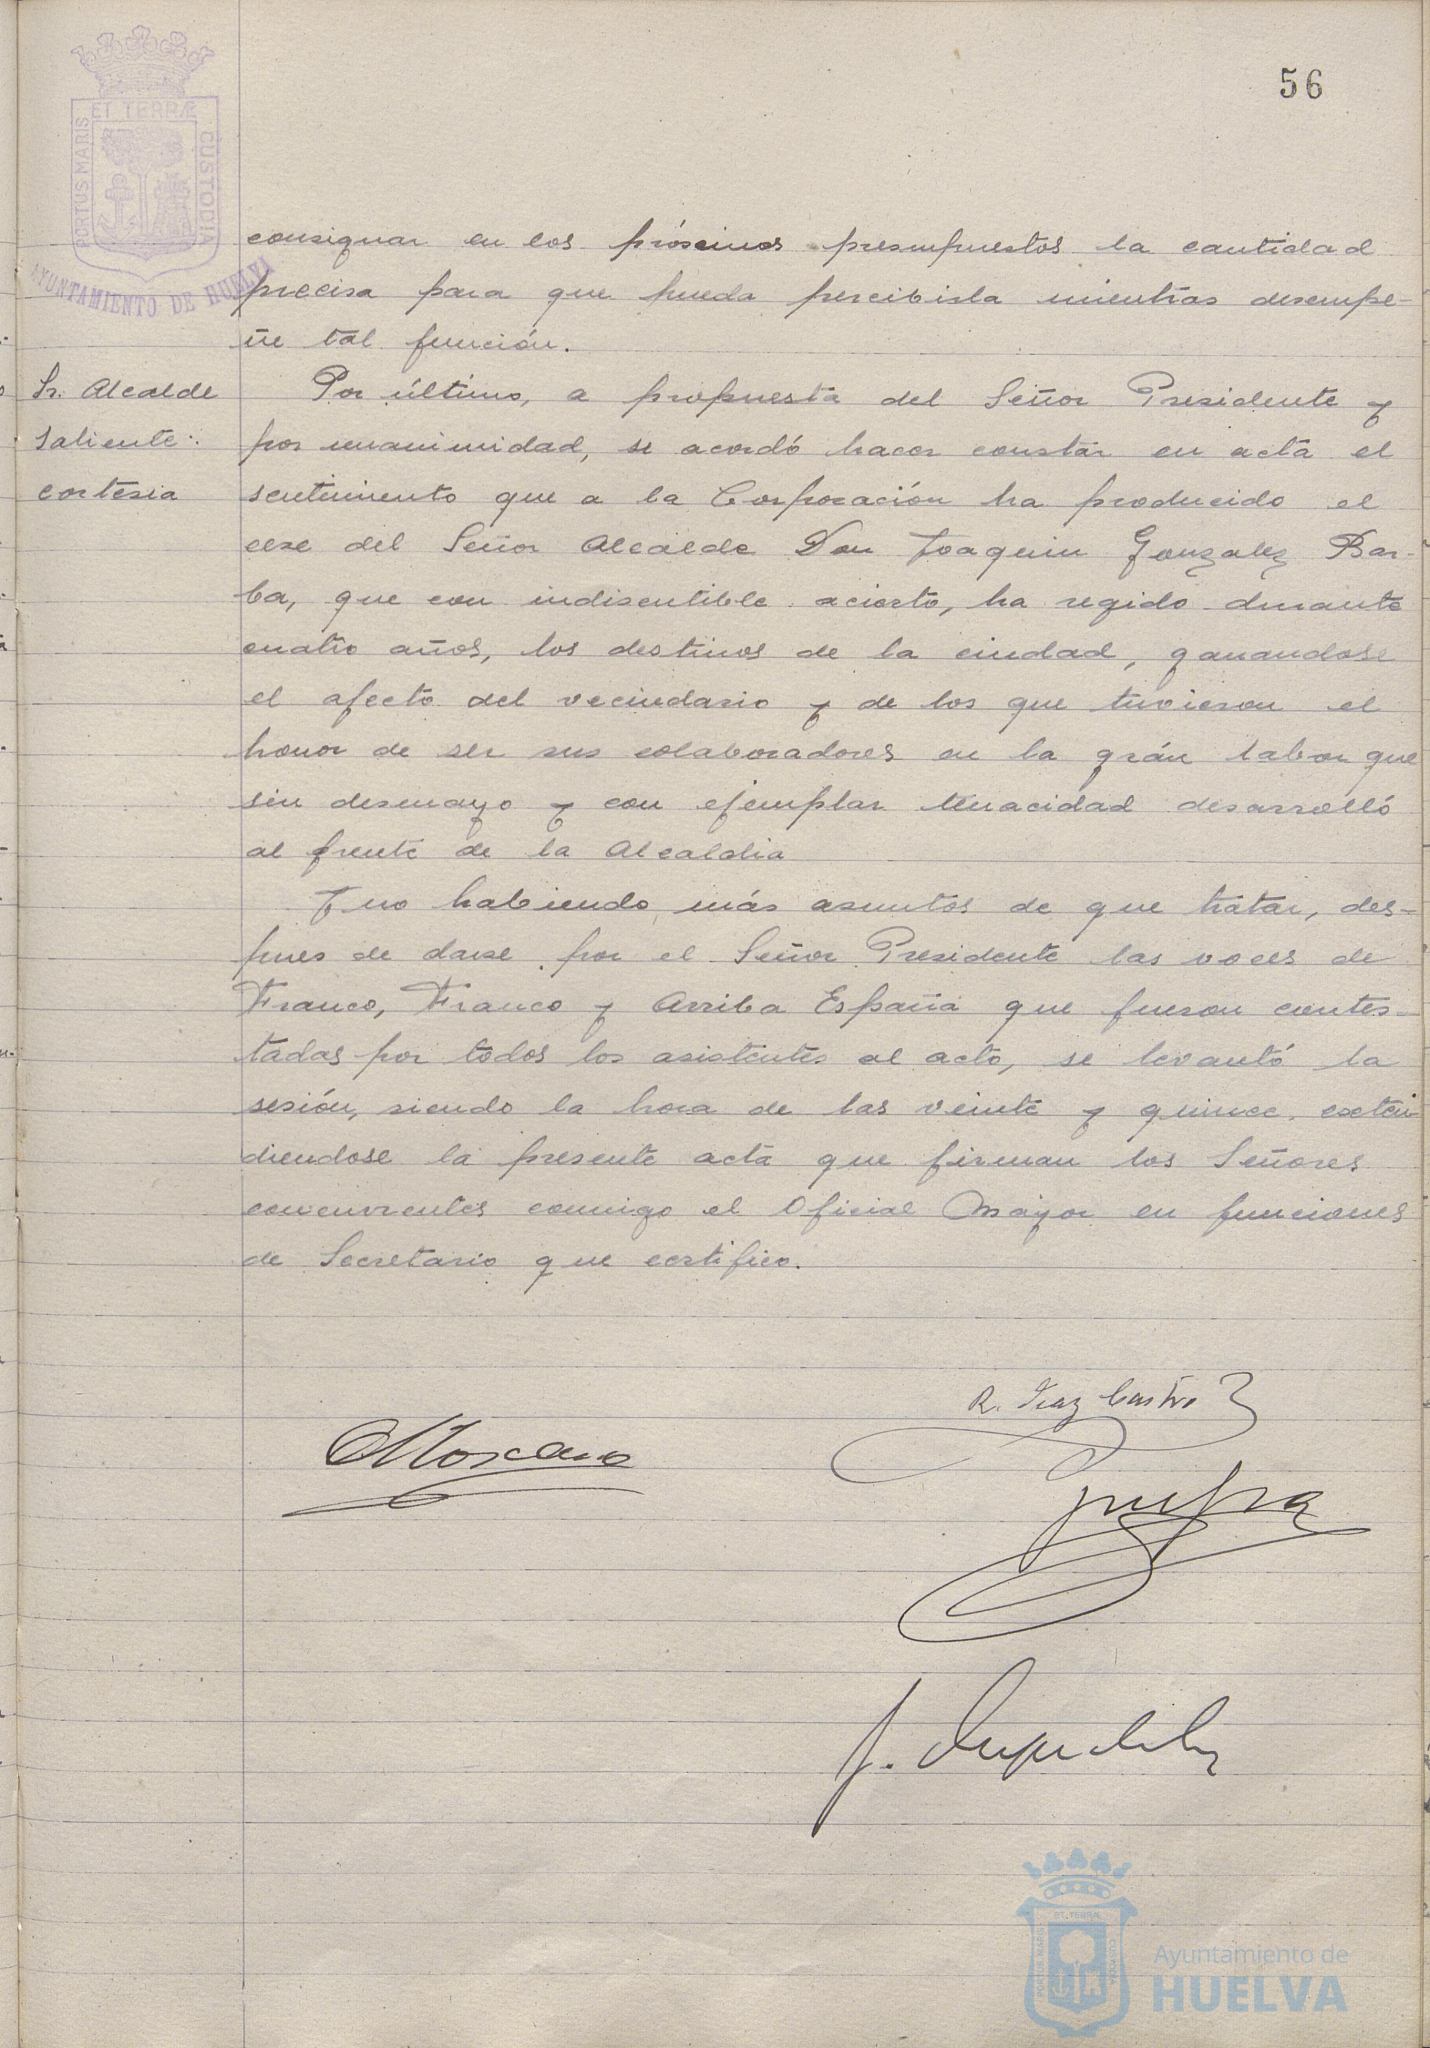 56
PORTUS MARIS
ET TERRÆ
CUSTODIA
AYUNTAMIENTO DE HUELVA
consignar en los próximos presupuestos la cantidad
precisa para que pueda percibirla mientras desempe-
ñe tal función.
Sr. Alcalde
saliente:
cortesia
Por último, a propuesta del Señor Presidente y
por unanimidad, se acordó hacer constar en acta el
sentimiento que a la Corporación ha producido el
cese del Señor Alcalde Don Joaquin Gonzalez Bar-
ba, que con indiscutible acierto, ha regido durante
cuatro años, los destinos de la ciudad, ganandose
el afecto del vecindario y de los que tuvieron el
honor de ser sus colaboradores en la grán labor que
sin desmayo y con ejemplar tenacidad desarrolló
al frente de la Alcaldia
Y no habiendo más asuntos de que tratar, des-
pues de darse por el Señor Presidente las voces de
Franco, Franco y Arriba España que fueron contes-
tadas por todos los asistentes al acto, se levantó la
sesión, siendo la hora de las veinte y quince, exten
diendose la presente acta que firman los Señores
concurrentes conmigo el Oficial Mayor en funciones
de Secretario que certifico.
R. Diaz Castro
Moscano
PORTUS MARIS
ET TERRÆ
CUSTODIA
Ayuntamiento de
HUELVA